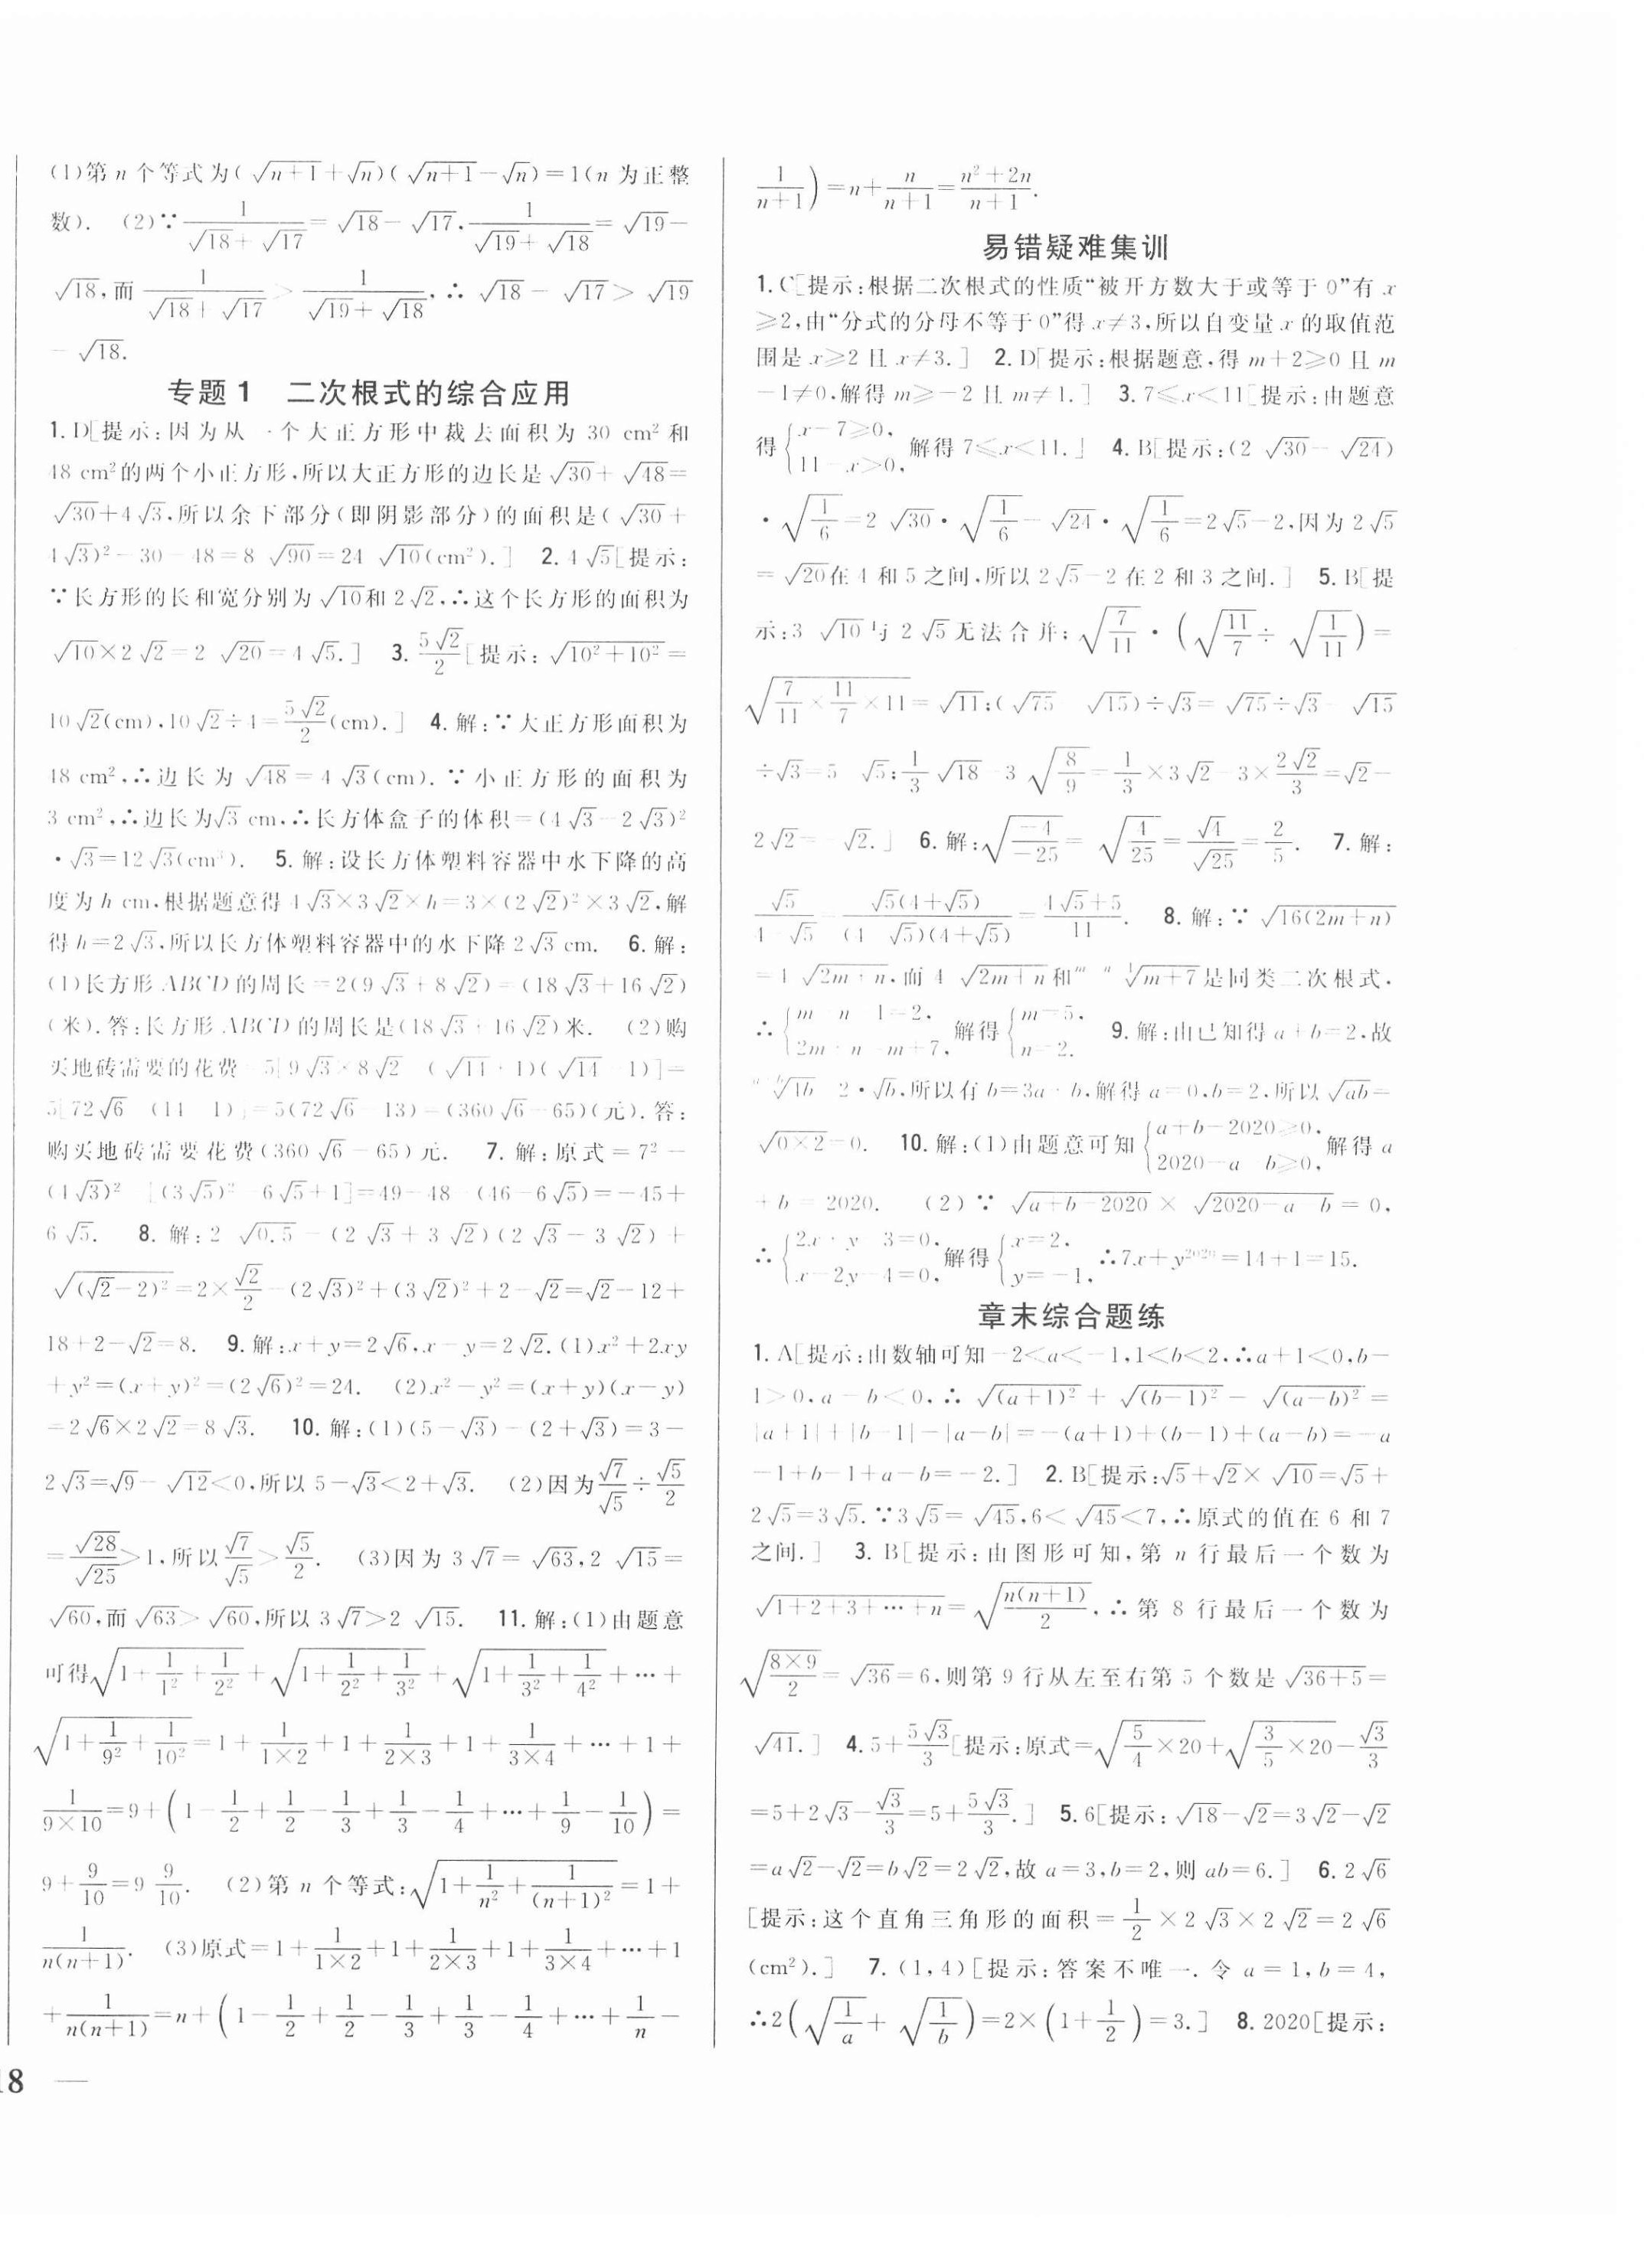 (1)第 n 个等式为(√(n+1)+√n)(√(n+1)-√n)=1(n 为正整
数). (2)∵1/(√18+√17)=√18-√17,1/(√19+√18)=√19-
√18,而 1/(√18+√17)>1/(√19+√18),∴√18-√17>√19
-√18.
专题1 二次根式的综合应用
1.D[提示:因为从一个大正方形中裁去面积为 30 cm²和
48 cm²的两个小正方形,所以大正方形的边长是√30+√48=
√30+4√3,所以余下部分(即阴影部分)的面积是(√30+
4√3)²-30-48=8√90=24√10(cm²).] 2. 4√5[提示:
∵长方形的长和宽分别为√10和2√2,∴这个长方形的面积为
√10×2√2=2√20=4√5.] 3. 5√2/2[提示:√(10²+10²)=
10√2(cm),10√2÷4=5√2/2(cm).] 4.解:∵大正方形面积为
48 cm²,∴边长为√48=4√3(cm). ∵小正方形的面积为
3 cm²,∴边长为√3 cm,∴长方体盒子的体积=(4√3-2√3)²
·√3=12√3(cm³). 5.解:设长方体塑料容器中水下降的高
度为 h cm,根据题意得 4√3×3√2×h=3×(2√2)²×3√2,解
得h=2√3,所以长方体塑料容器中的水下降2√3 cm. 6.解:
(1)长方形 ABCD 的周长=2(9√3+8√2)=(18√3+16√2)
(米).答:长方形 ABCD 的周长是(18√3+16√2)米. (2)购
买地砖需要的花费=5[9√3×8√2-(√14+1)(√14-1)]=
5[72√6-(14-1)]=5(72√6-13)=(360√6-65)(元).答:
购买地砖需要花费(360√6-65)元. 7.解:原式=7²-
(4√3)²-[(3√5)²-6√5+1]=49-48-(46-6√5)=-45+
6√5. 8.解:2√0.5-(2√3+3√2)(2√3-3√2)+
√((√2-2)²)=2×√2/2-(2√3)²+(3√2)²+2-√2=√2-12+
18+2-√2=8. 9.解:x+y=2√6,x-y=2√2.(1)x²+2xy
+y²=(x+y)²=(2√6)²=24. (2)x²-y²=(x+y)(x-y)
=2√6×2√2=8√3. 10.解:(1)(5-√3)-(2+√3)=3-
2√3=√9-√12<0,所以 5-√3<2+√3. (2)因为√7/√5÷√5/2
=√28/√25>1,所以√7/√5>√5/2. (3)因为 3√7=√63,2√15=
√60,而√63>√60,所以 3√7>2√15. 11.解:(1)由题意
可得√(1+1/1²+1/2²)+√(1+1/2²+1/3²)+√(1+1/3²+1/4²)+…+
√(1+1/9²+1/10²)=1+1/(1×2)+1+1/(2×3)+1+1/(3×4)+…+1+
1/(9×10)=9+(1-1/2+1/2-1/3+1/3-1/4+…+1/9-1/10)=
9+9/10=9 9/10. (2)第 n 个等式:√(1+1/n²+1/(n+1)²)=1+
1/(n(n+1)). (3)原式=1+1/(1×2)+1+1/(2×3)+1+1/(3×4)+…+1
+1/(n(n+1))=n+(1-1/2+1/2-1/3+1/3-1/4+…+1/n-
18 —
1/(n+1))=n+n/(n+1)=(n²+2n)/(n+1).
易错疑难集训
1.C[提示:根据二次根式的性质“被开方数大于或等于 0”有 x
≥2,由“分式的分母不等于0”得 x≠3,所以自变量 x 的取值范
围是 x≥2 且 x≠3.] 2.D[提示:根据题意,得 m+2≥0 且 m
-1≠0,解得 m≥-2 且 m≠1.] 3. 7≤x<11[提示:由题意
得{x-7≥0, 11-x>0, 解得 7≤x<11.] 4.B[提示:(2√30-√24)
·√(1/6)=2√30·√(1/6)-√24·√(1/6)=2√5-2,因为 2√5
=√20在 4 和 5 之间,所以 2√5-2 在 2 和 3 之间.] 5.B[提
示:3√10与 2√5无法合并;√(7/11)·(√(11/7)÷√(1/11))=
√(7/11×11/7×11)=√11;(√75-√15)÷√3=√75÷√3-√15
÷√3=5-√5;1/3√18-3√(8/9)=1/3×3√2-3×2√2/3=√2-
2√2=-√2.] 6.解:√(-4/-25)=√(4/25)=√4/√25=2/5. 7.解:
√5/(4-√5)=√5(4+√5)/((4-√5)(4+√5))=(4√5+5)/11. 8.解:∵√(16(2m+n))
=4√(2m+n),而 4√(2m+n)和 √(m+7)是同类二次根式,
∴{m-n-1=2, 2m+n=m+7, 解得{m=5, n=2. 9.解:由已知得 a+b=2,故
2·√b,所以有 b=3a+b,解得 a=0,b=2,所以√ab=
√(0×2)=0. 10.解:(1)由题意可知{a+b-2020≥0, 2020-a-b≥0, 解得 a
+b=2020. (2)∵√(a+b-2020)×√(2020-a-b)=0,
∴{2x+y-3=0, x-2y-4=0, 解得{x=2, y=-1, ∴7x+y²⁰²⁰=14+1=15.
章末综合题练
1.A[提示:由数轴可知-2<a<-1,1<b<2,∴a+1<0,b-
1>0,a-b<0,∴√((a+1)²)+√((b-1)²)-√((a-b)²)=
|a+1|+|b-1|-|a-b|=-(a+1)+(b-1)+(a-b)=-a
-1+b-1+a-b=-2.] 2.B[提示:√5+√2×√10=√5+
2√5=3√5.∵3√5=√45,6<√45<7,∴原式的值在 6 和 7
之间.] 3.B[提示:由图形可知,第 n 行最后一个数为
√(1+2+3+…+n)=√(n(n+1)/2),∴第 8 行最后一个数为
√(8×9/2)=√36=6,则第 9 行从左至右第 5 个数是√(36+5)=
√41.] 4. 5+5√3/3[提示:原式=√(5/4×20)+√(3/5×20)-√3/3
=5+2√3-√3/3=5+5√3/3.] 5. 6[提示:√18-√2=3√2-√2
=a√2-√2=b√2=2√2,故 a=3,b=2,则 ab=6.] 6. 2√6
[提示:这个直角三角形的面积=1/2×2√3×2√2=2√6
(cm²).] 7. (1,4)[提示:答案不唯一.令 a=1,b=4,
∴2(√(1/a)+√(1/b))=2×(1+1/2)=3.] 8. 2020[提示: